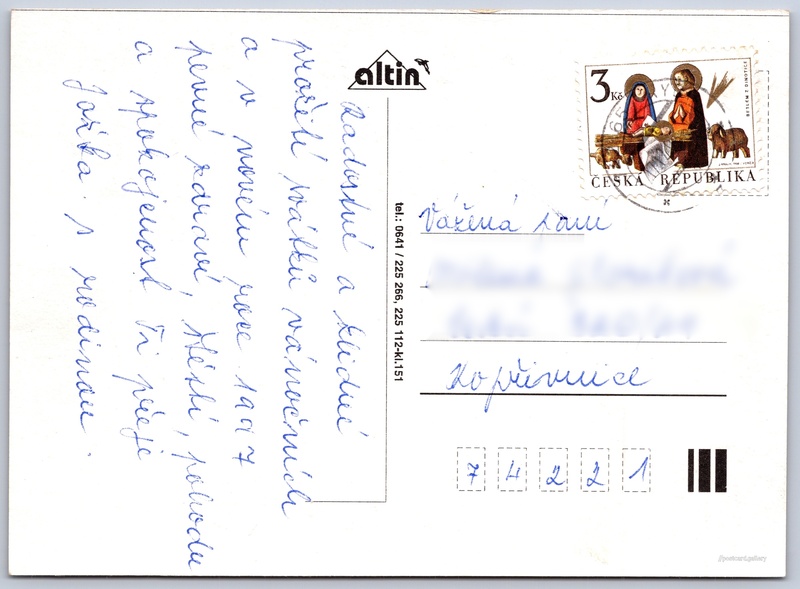 altin
Radostné a klidné
prožití svátků vánočních
a v novém roce 1997
pevné zdraví, štěstí, pohodu
a spokojenost Ti přeje
Jožka s rodinou.
tel.: 0641 / 225 266, 225 112-kl.151
3 Kč
BETLÉM Z DINOTIC
ČESKÁ REPUBLIKA
Vážená paní
Kopřivnice
74221
postcard.gallery